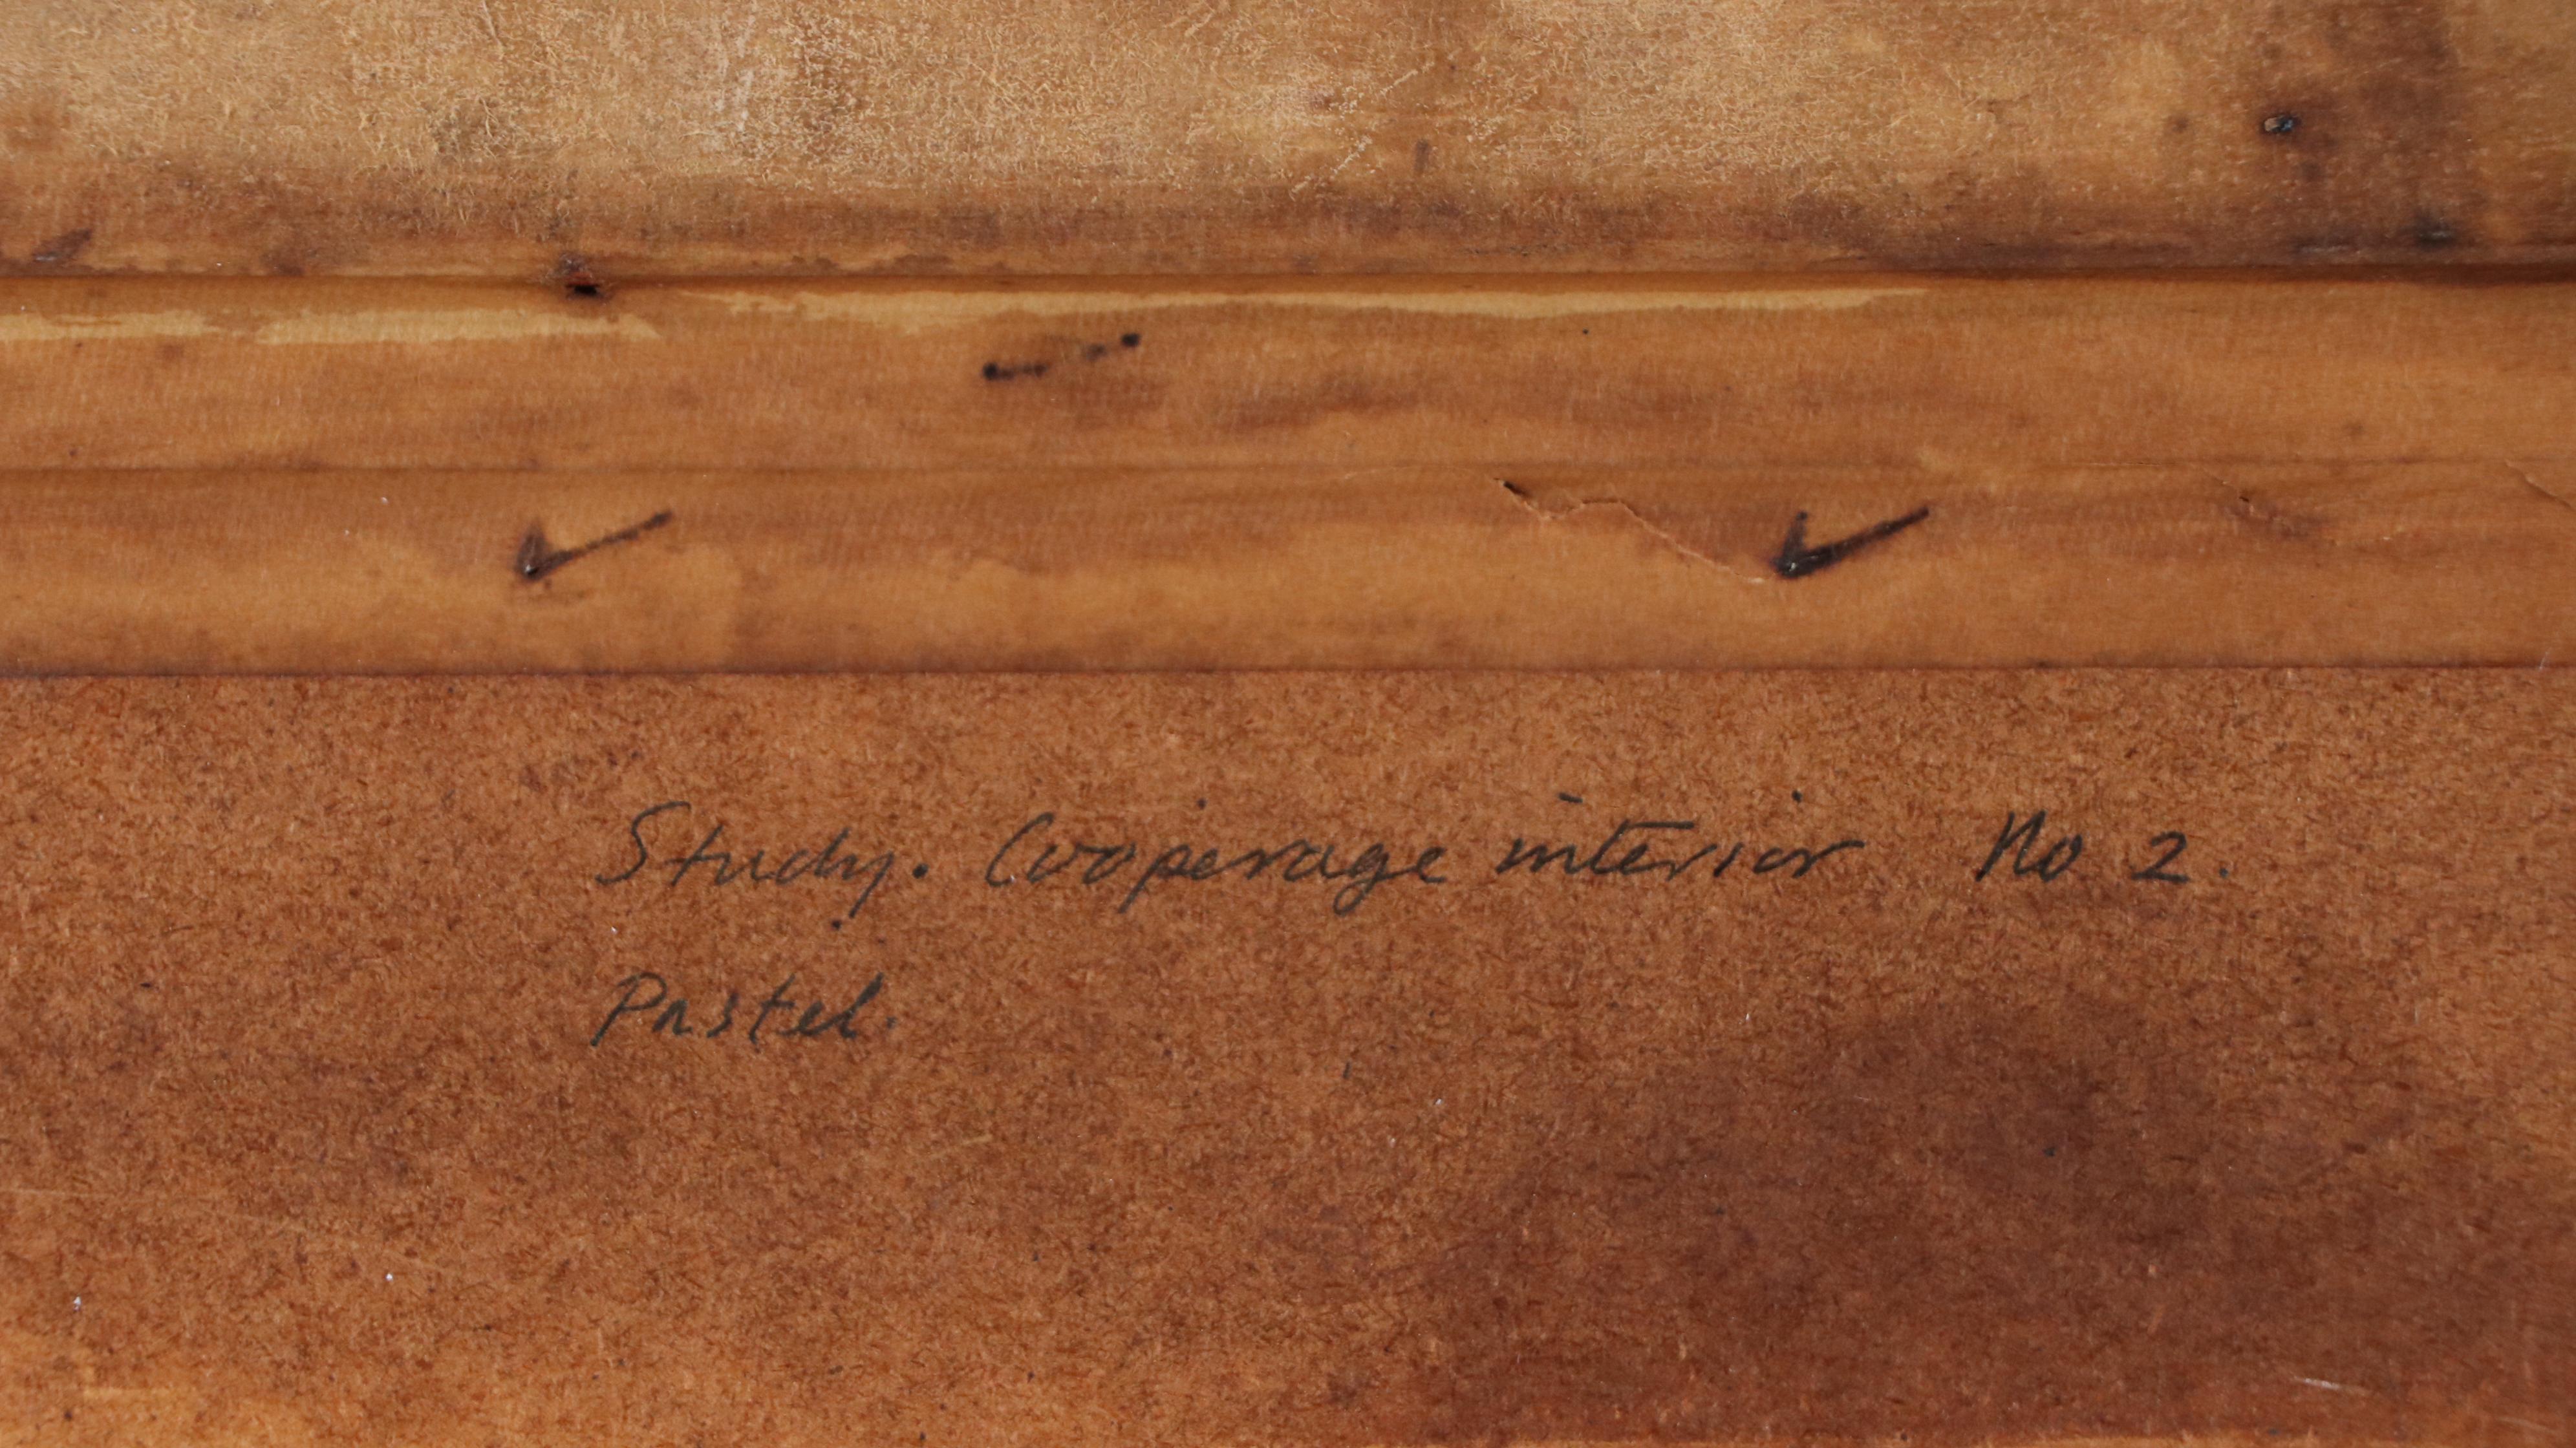 Study. Cooperage interior No 2.
Pastel.